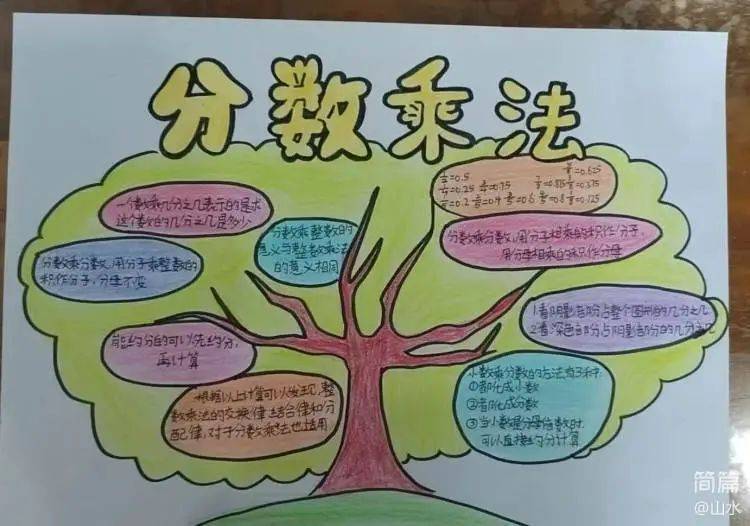 分数乘法
一个数乘几分之几表示的是求
这个数的几分之几是多少
分数乘分数,用分子乘整数的
积作分子,分母不变
分数乘整数的
意义与整数乘法
的意义相同
能约分的可以先约分,
再计算
根据以上计算可以发现,整
数乘法的交换律、结合律和分
配律,对于分数乘法也适用
=0.5 =0.625
=0.25 =0.75 =0.875 =0.375
=0.2 =0.4 =0.6 =0.8 =0.125
分数乘分数,用分子相乘的积作分子,
用分母相乘的积作分母
1.看阴影部分占整个图形的几分之几
2.看深色部分占阴影部分的几分之几
小数乘分数的方法有3种:
①都化成小数
②都化成分数
③当小数是分母倍数时,
可以直接约分计算
简篇
@山水